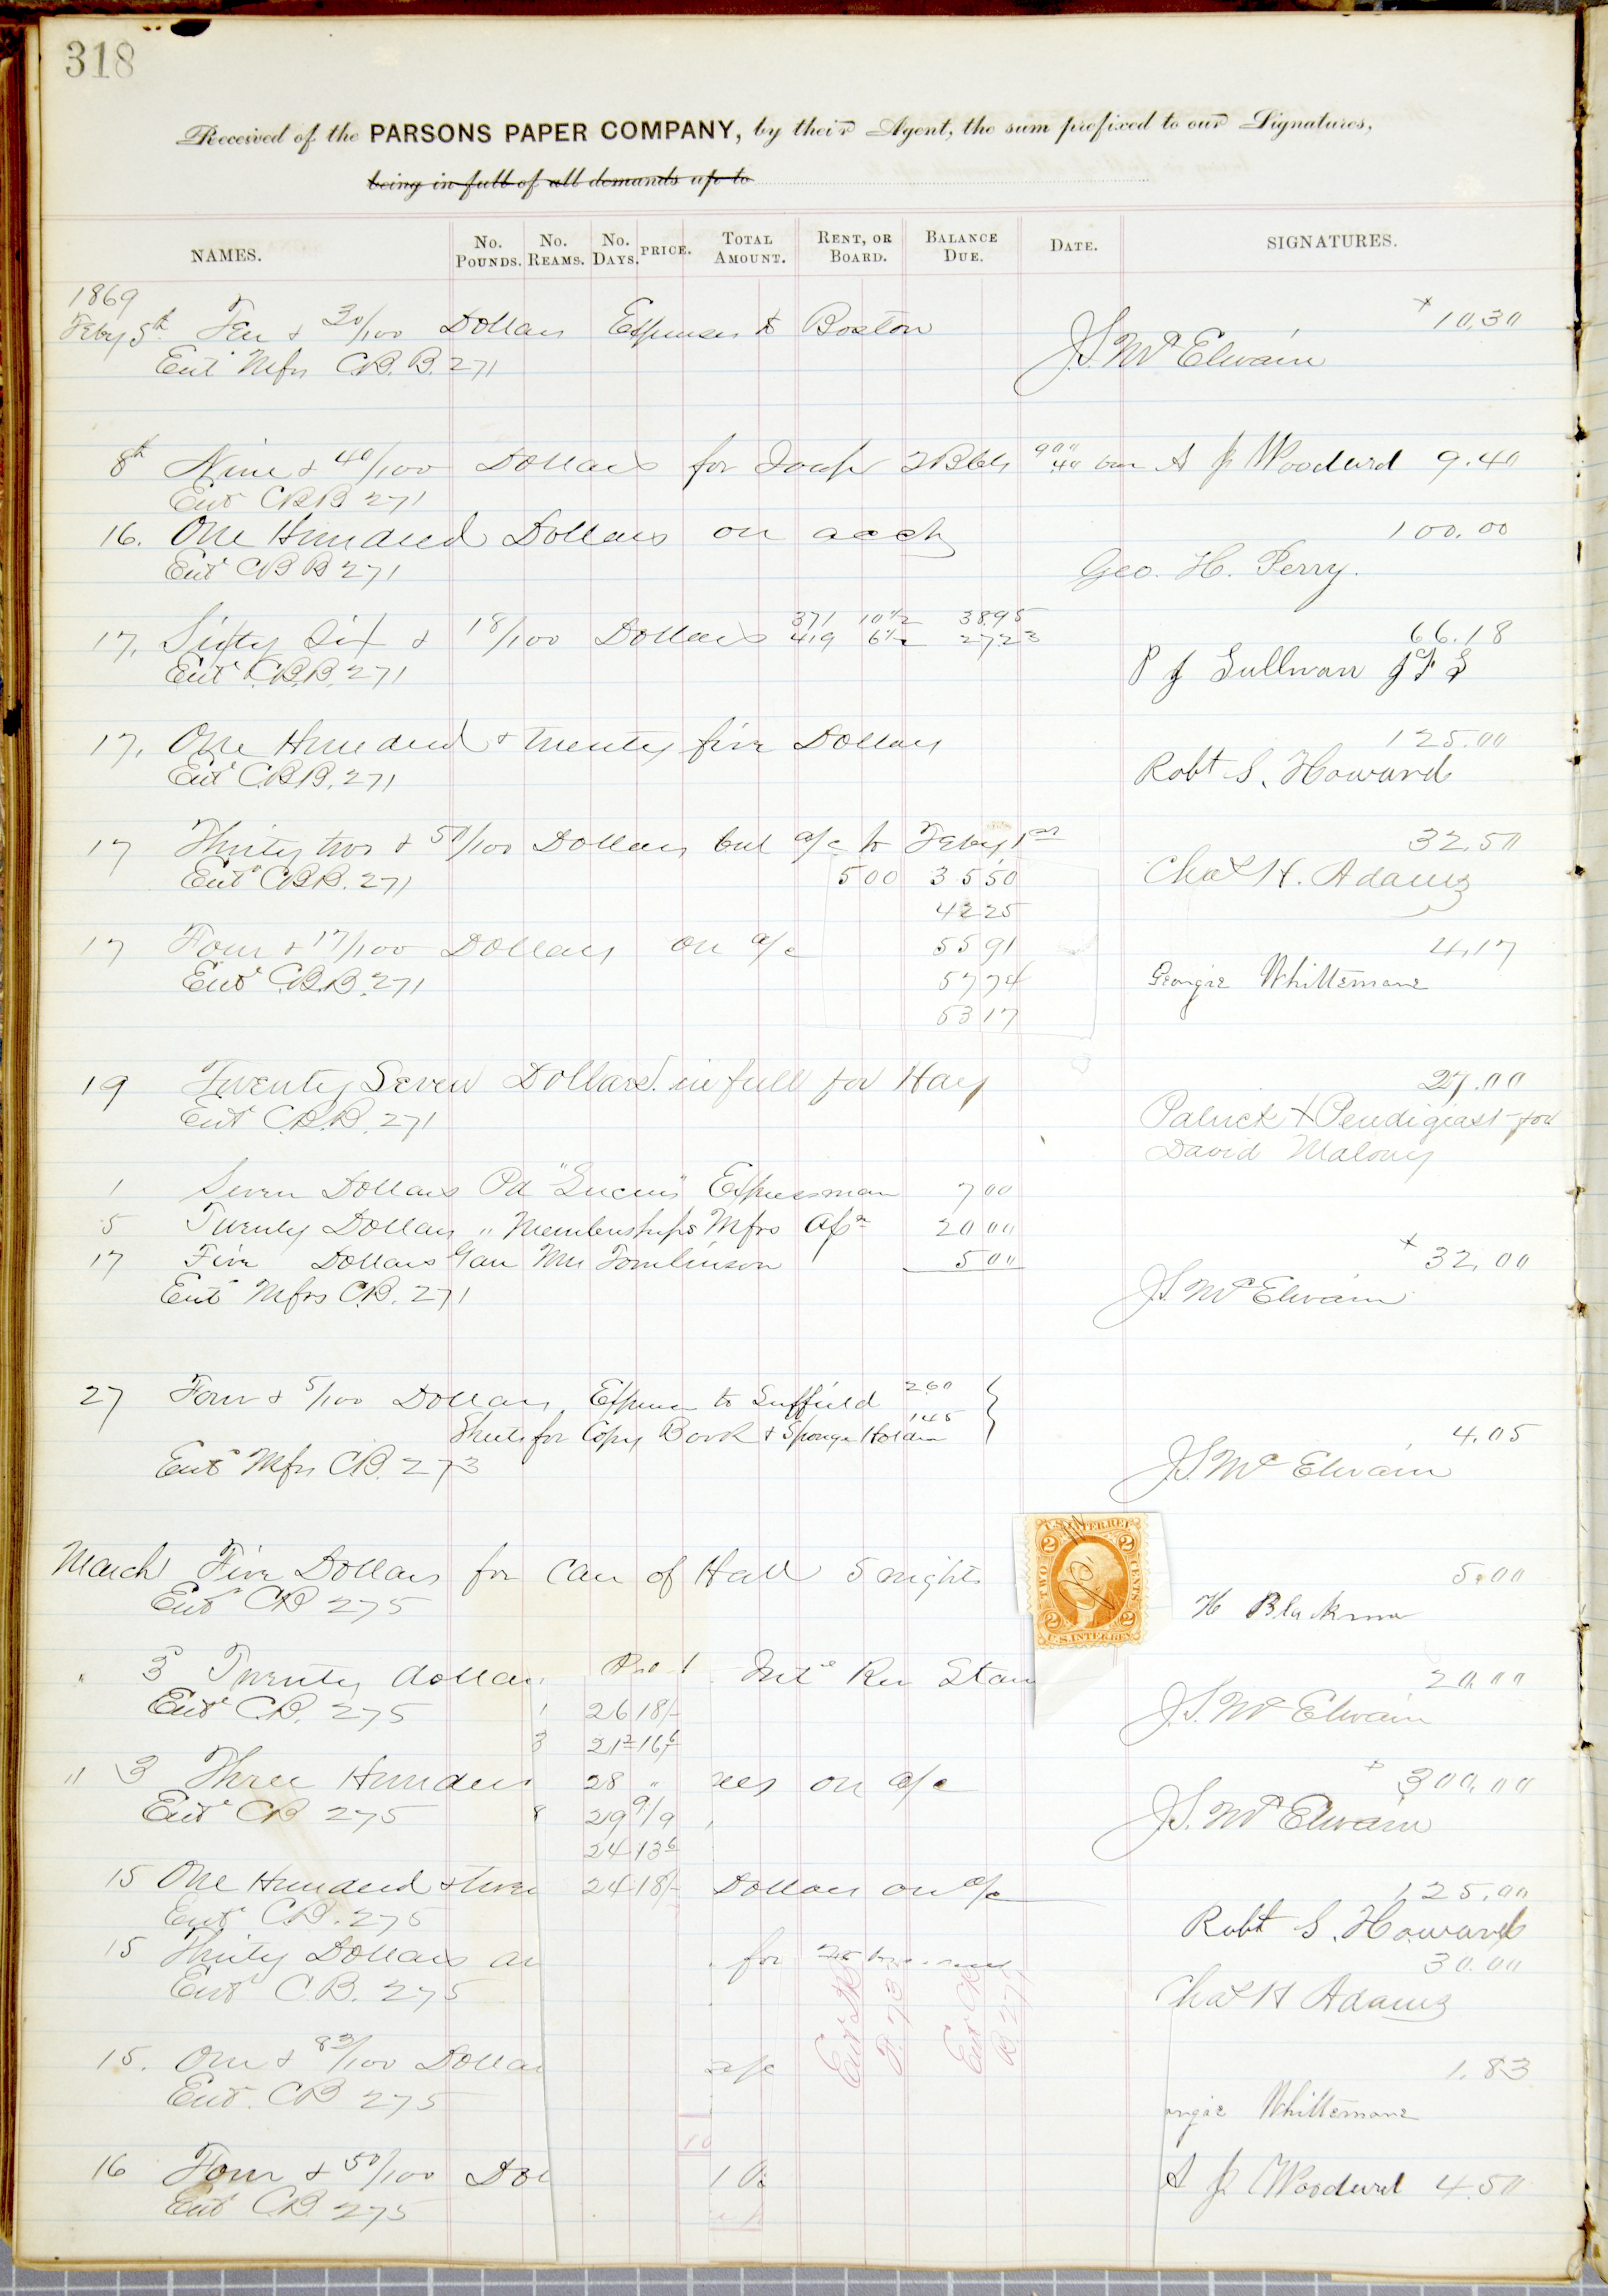 318
Received of the PARSONS PAPER COMPANY, by their Agent, the sum prefixed to our Signatures,
being in full of all demands up to
NAMES. No. POUNDS. No. REAMS. No. DAYS. PRICE. TOTAL AMOUNT. RENT, OR BOARD. BALANCE DUE. DATE. SIGNATURES.
1869
Feby 5th Ten & 30/100 Dollars Expenses to Boston 10,30
Ent Mfrs C.B.B. 271 J.S. McElwain
8th Nine & 40/100 Dollars for Soap 2 Bbls 900 40 A J Woodard 9.40
Ent CBB 271
16. One Hundred Dollars on acct 100.00
Ent CBB 271 Geo. H. Perry.
371 10 1/2 3895
17, Sixty Six & 18/100 Dollars 419 6 1/2 2723 66.18
Ent C.B.B. 271 P J Sullivan JFS
17, One Hundred & twenty five Dollars 125.00
Ent C.B.B. 271 Robt S. Howard
17 Thirty two & 50/100 Dollars bal a/c to Feby 1st 32.50
Ent CBB. 271 500 3550 Chas H. Adams
4225
17 Four & 17/100 Dollars on a/c 5591 4,17
Ent C.B.B. 271 5774 Georgie Whittemore
5317
19 Twenty Seven Dollars. in full for Hay 27.00
Ent C.B.B. 271 Patrick Pendigrast for
David Malony
1 Seven Dollars Pd "Lucius" Expressman 700
5 Twenty Dollars " Memberships Mfrs Assn 2000
17 Five Dollars Gave Mrs Tomlinson 500 32,00
Ent Mfrs C.B. 271 J.S. McElwain
27 Four & 5/100 Dollars, Expenses to Suffield 260
Sheets for Copy Book & Sponge Holder 145 4.05
Ent Mfrs CB. 273 J.S. McElwain
U.S. INTER. REV.
2 2
TWO CENTS
2 2
U.S. INTER. REV.
March 1 Five Dollars for Care of Hall 5 nights 5.00
Ent CB 275 H Blackmer
" 3 Twenty dollars Int Rev Stam 20.00
Ent C.B. 275 1 26 18/- J.S. McElwain
3 21 16
" 3 Three Hundred 28 " on a/c 300.00
Ent CB 275 8 29 9/9 J.S. McElwain
24 13
15 One Hundred & twen 24 18/- Dollars on a/c 125.00
Ent CB. 275 Robt S. Howard
15 Thirty Dollars on for 30.00
Ent C.B. 275 Chas H Adams
15. One & 83/100 Dollar a/c 1.83
Ent. CB 275 orgie Whittemore
16 Four & 50/100 Dol A J Woodard 4.50
Ent CB. 275